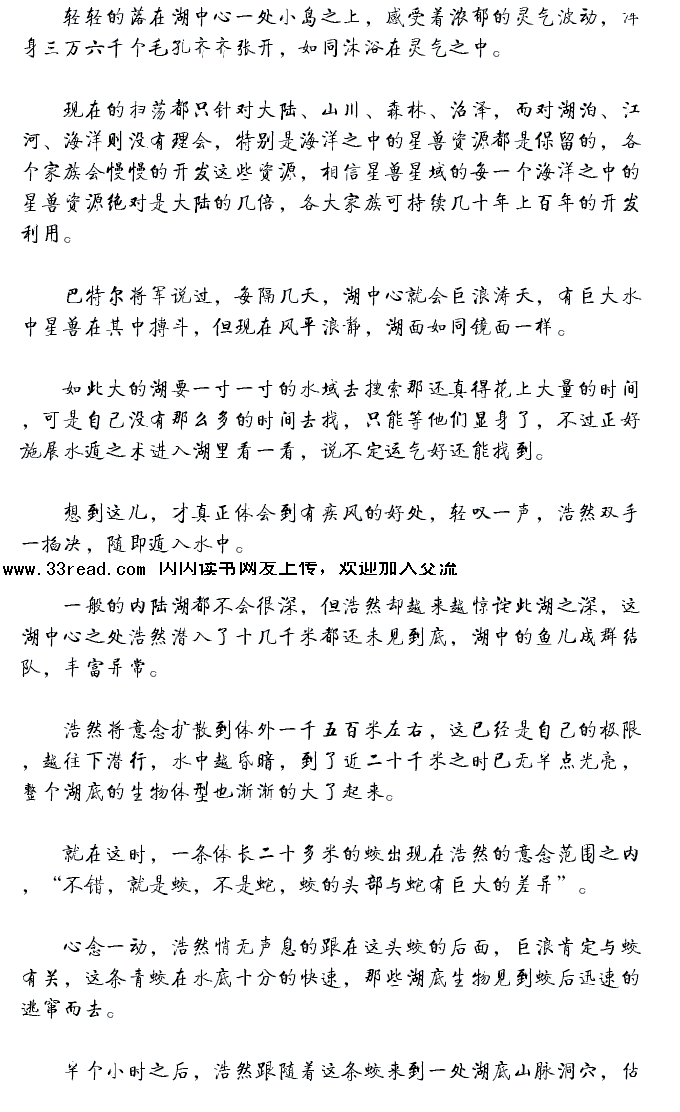 轻轻的落在湖中心一处小岛之上，感受着浓郁的灵气波动，浑
身三万六千个毛孔齐齐张开，如同沐浴在灵气之中。
现在的扫荡都只针对大陆、山川、森林、沼泽，而对湖泊、江
河、海洋则没有理会，特别是海洋之中的星兽资源都是保留的，各
个家族会慢慢的开发这些资源，相信星兽星域的每一个海洋之中的
星兽资源绝对是大陆的几倍，各大家族可持续几十年上百年的开发
利用。
巴特尔将军说过，每隔几天，湖中心就会巨浪涛天，有巨大水
中星兽在其中搏斗，但现在风平浪静，湖面如同镜面一样。
如此大的湖要一寸一寸的水域去搜索那还真得花上大量的时间
，可是自己没有那么多的时间去找，只能等他们显身了，不过正好
施展水遁之术进入湖里看一看，说不定运气好还能找到。
想到这儿，才真正体会到有疾风的好处，轻叹一声，浩然双手
一掐决，随即遁入水中。
www.33read.com 闪闪读书网友上传，欢迎加入交流
一般的内陆湖都不会很深，但浩然却越来越惊诧此湖之深，这
湖中心之处浩然潜入了十几千米都还未见到底，湖中的鱼儿成群结
队，丰富异常。
浩然将意念扩散到体外一千五百米左右，这已经是自己的极限
，越往下潜行，水中越昏暗，到了近二十千米之时已无半点光亮，
整个湖底的生物体型也渐渐的大了起来。
就在这时，一条体长二十多米的蛟出现在浩然的意念范围之内
，“不错，就是蛟，不是蛇，蛟的头部与蛇有巨大的差异”。
心念一动，浩然悄无声息的跟在这头蛟的后面，巨浪肯定与蛟
有关，这条青蛟在水底十分的快速，那些湖底生物见到蛟后迅速的
逃窜而去。
半个小时之后，浩然跟随着这条蛟来到一处湖底山脉洞穴，估